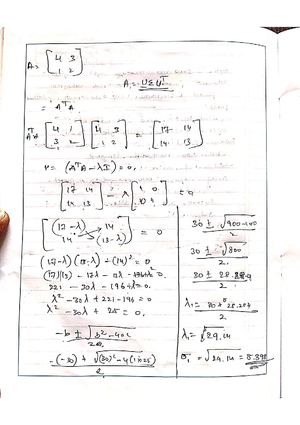 A = [4 3
1 2]
A = UΣVᵀ
= AᵀA
AᵀA [4 1
3 2] [4 3
1 2] = [17 14
14 13]
v = (AᵀA - λI) = 0,
[17 14
14 13] - λ [1 0
0 1] = 0
[(17-λ) 14
14 (13-λ)] = 0
(17-λ)(13-λ) - (14)² = 0
221 - 30λ + λ² - 196 = 0.
λ² - 30λ + 221 - 196 = 0
λ² - 30λ + 25 = 0,
-b ± √b² - 4ac
2a
-(-30) ± √(30)² - 4(1)(25)
2
30 ± √900-100
2
30 ± √800
2
30 ± 28.284
2
λ₁ = 30 + 28.284
2
λ₁ = 29.14
σ₁ = √29.14 = 5.398